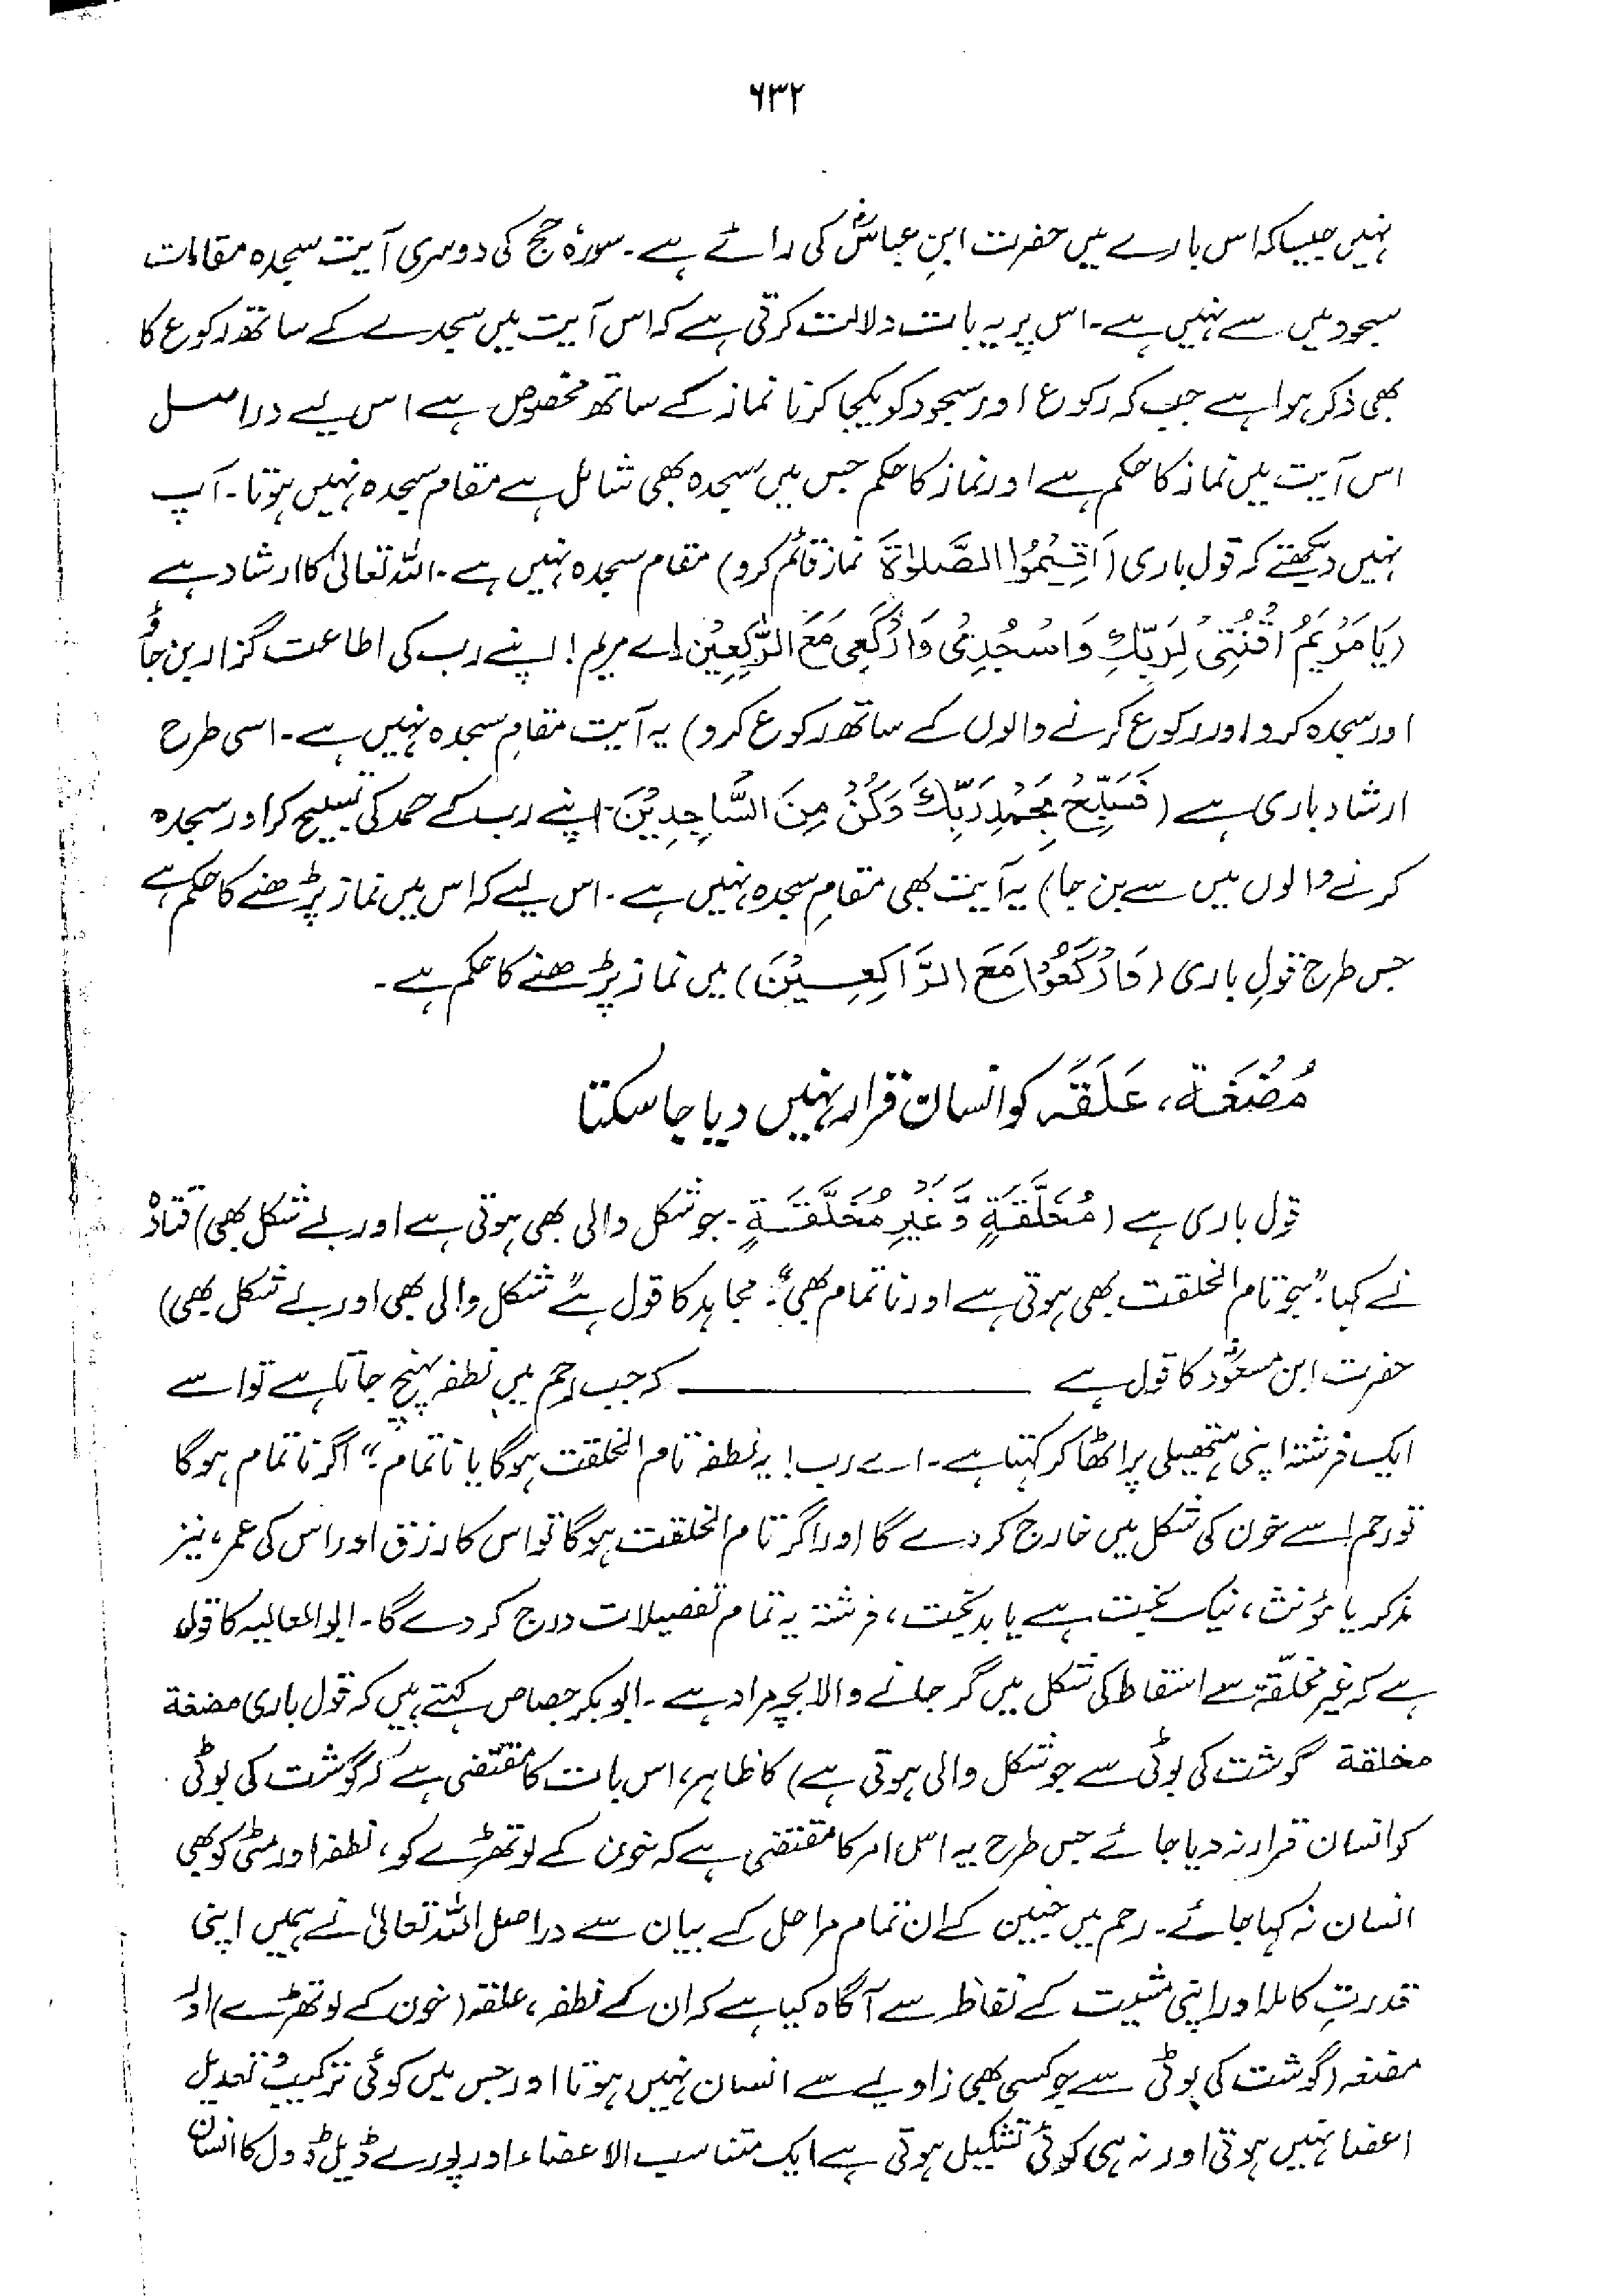 ۶۳۲
نہیں جیسا کہ اس بارے میں حضرت ابنِ عباسؓ کی رائے ہے۔ سورۂ حج کی دوسری آیت سجدہ مقامات
سجود میں سے نہیں ہے۔ اس پر یہ بات دلالت کرتی ہے کہ اس آیت میں سجدے کے ساتھ رکوع کا
بھی ذکر ہوا ہے جب کہ رکوع اور سجود کو یکجا کرنا نماز کے ساتھ مخصوص ہے اس لیے دراصل
اس آیت میں نماز کا حکم ہے اور نماز کا حکم جس میں سجدہ بھی شامل ہے مقام سجدہ نہیں ہوتا۔ آپ
نہیں دیکھتے کہ قول باری (اَقِیْمُوا الصَّلوٰۃَ نماز قائم کرو) مقام سجدہ نہیں ہے۔ اللہ تعالیٰ کا ارشاد ہے
(یَا مَرْیَمُ اقْنُتِیْ لِرَبِّكِ وَاسْجُدِیْ وَارْكَعِی مَعَ الرّٰكِعِیْن اے مریم! اپنے رب کی اطاعت گزار بن جاؤ
اور سجدہ کرو اور رکوع کرنے والوں کے ساتھ رکوع کرو) یہ آیت مقامِ سجدہ نہیں ہے۔ اسی طرح
ارشاد باری ہے (فَسَبِّحْ بِحَمْدِ رَبِّكَ وَكُنْ مِنَ السَّاجِدِیْنَ۔ اپنے رب کے حمد کی تسبیح کر اور سجدہ
کرنے والوں میں سے بن جا) یہ آیت بھی مقامِ سجدہ نہیں ہے۔ اس لیے کہ اس میں نماز پڑھنے کا حکم ہے
جس طرح قولِ باری (وَارْكَعُوْا مَعَ الرَّاكِعِیْنَ) میں نماز پڑھنے کا حکم ہے۔
مُضْغَۃ، عَلَقَہ کو انسان قرار نہیں دیا جا سکتا
قول باری ہے (مُخَلَّقَۃٍ وَّغَیْرِ مُخَلَّقَۃٍ۔ جو شکل والی بھی ہوتی ہے اور بے شکل بھی) قتادہؒ
نے کہا: "جو تام الخلقت بھی ہوتی ہے اور ناتمام بھی"۔ مجاہد کا قول ہے "شکل والی بھی اور بے شکل بھی)
حضرت ابن مسعودؓ کا قول ہے ــــــــــــ کہ جب رحم میں نطفہ پہنچ جاتا ہے تو اسے
ایک فرشتہ اپنی ہتھیلی پر اٹھا کر کہتا ہے۔ اے رب! یہ نطفہ تام الخلقت ہوگا یا ناتمام؟" اگر ناتمام ہوگا
تو رحم اسے خون کی شکل میں خارج کر دے گا اور اگر تام الخلقت ہوگا تو اس کا رزق اور اس کی عمر، نیز
مذکر یا مؤنث، نیک بخت ہے یا بدبخت، فرشتہ یہ تمام تفصیلات درج کر دے گا۔ ابو العالیہ کا قول
ہے کہ غیر مخلّقۃ سے اسقاط کی شکل میں گر جانے والا بچہ مراد ہے۔ ابوبکر جصاص کہتے ہیں کہ قول باری مضغة
مخلقة گوشت کی بوٹی سے جو شکل والی ہوتی ہے) کا ظاہر، اس بات کا مقتضی ہے کہ گوشت کی بوٹی
کو انسان قرار نہ دیا جائے جس طرح یہ اس امر کا مقتضی ہے کہ خون کے لوتھڑے کو، نطفہ اور مٹی کو بھی
انسان نہ کہا جائے۔ رحم میں جنین کے ان تمام مراحل کے بیان سے دراصل اللہ تعالیٰ نے ہمیں اپنی
قدرتِ کاملہ اور اپنی مشیت کے نفاذ سے آگاہ کیا ہے کہ ان کے نطفہ، علقہ (خون کے لوتھڑے) اور
مضغہ (گوشت کی بوٹی سے جو کسی بھی زاویے سے انسان نہیں ہوتا اور جس میں کوئی ترکیب و تعدیل
اعضا نہیں ہوتی اور نہ ہی کوئی تشکیل ہوتی ہے ایک متناسب الاعضاء اور پورے ڈیل ڈول کا انسان